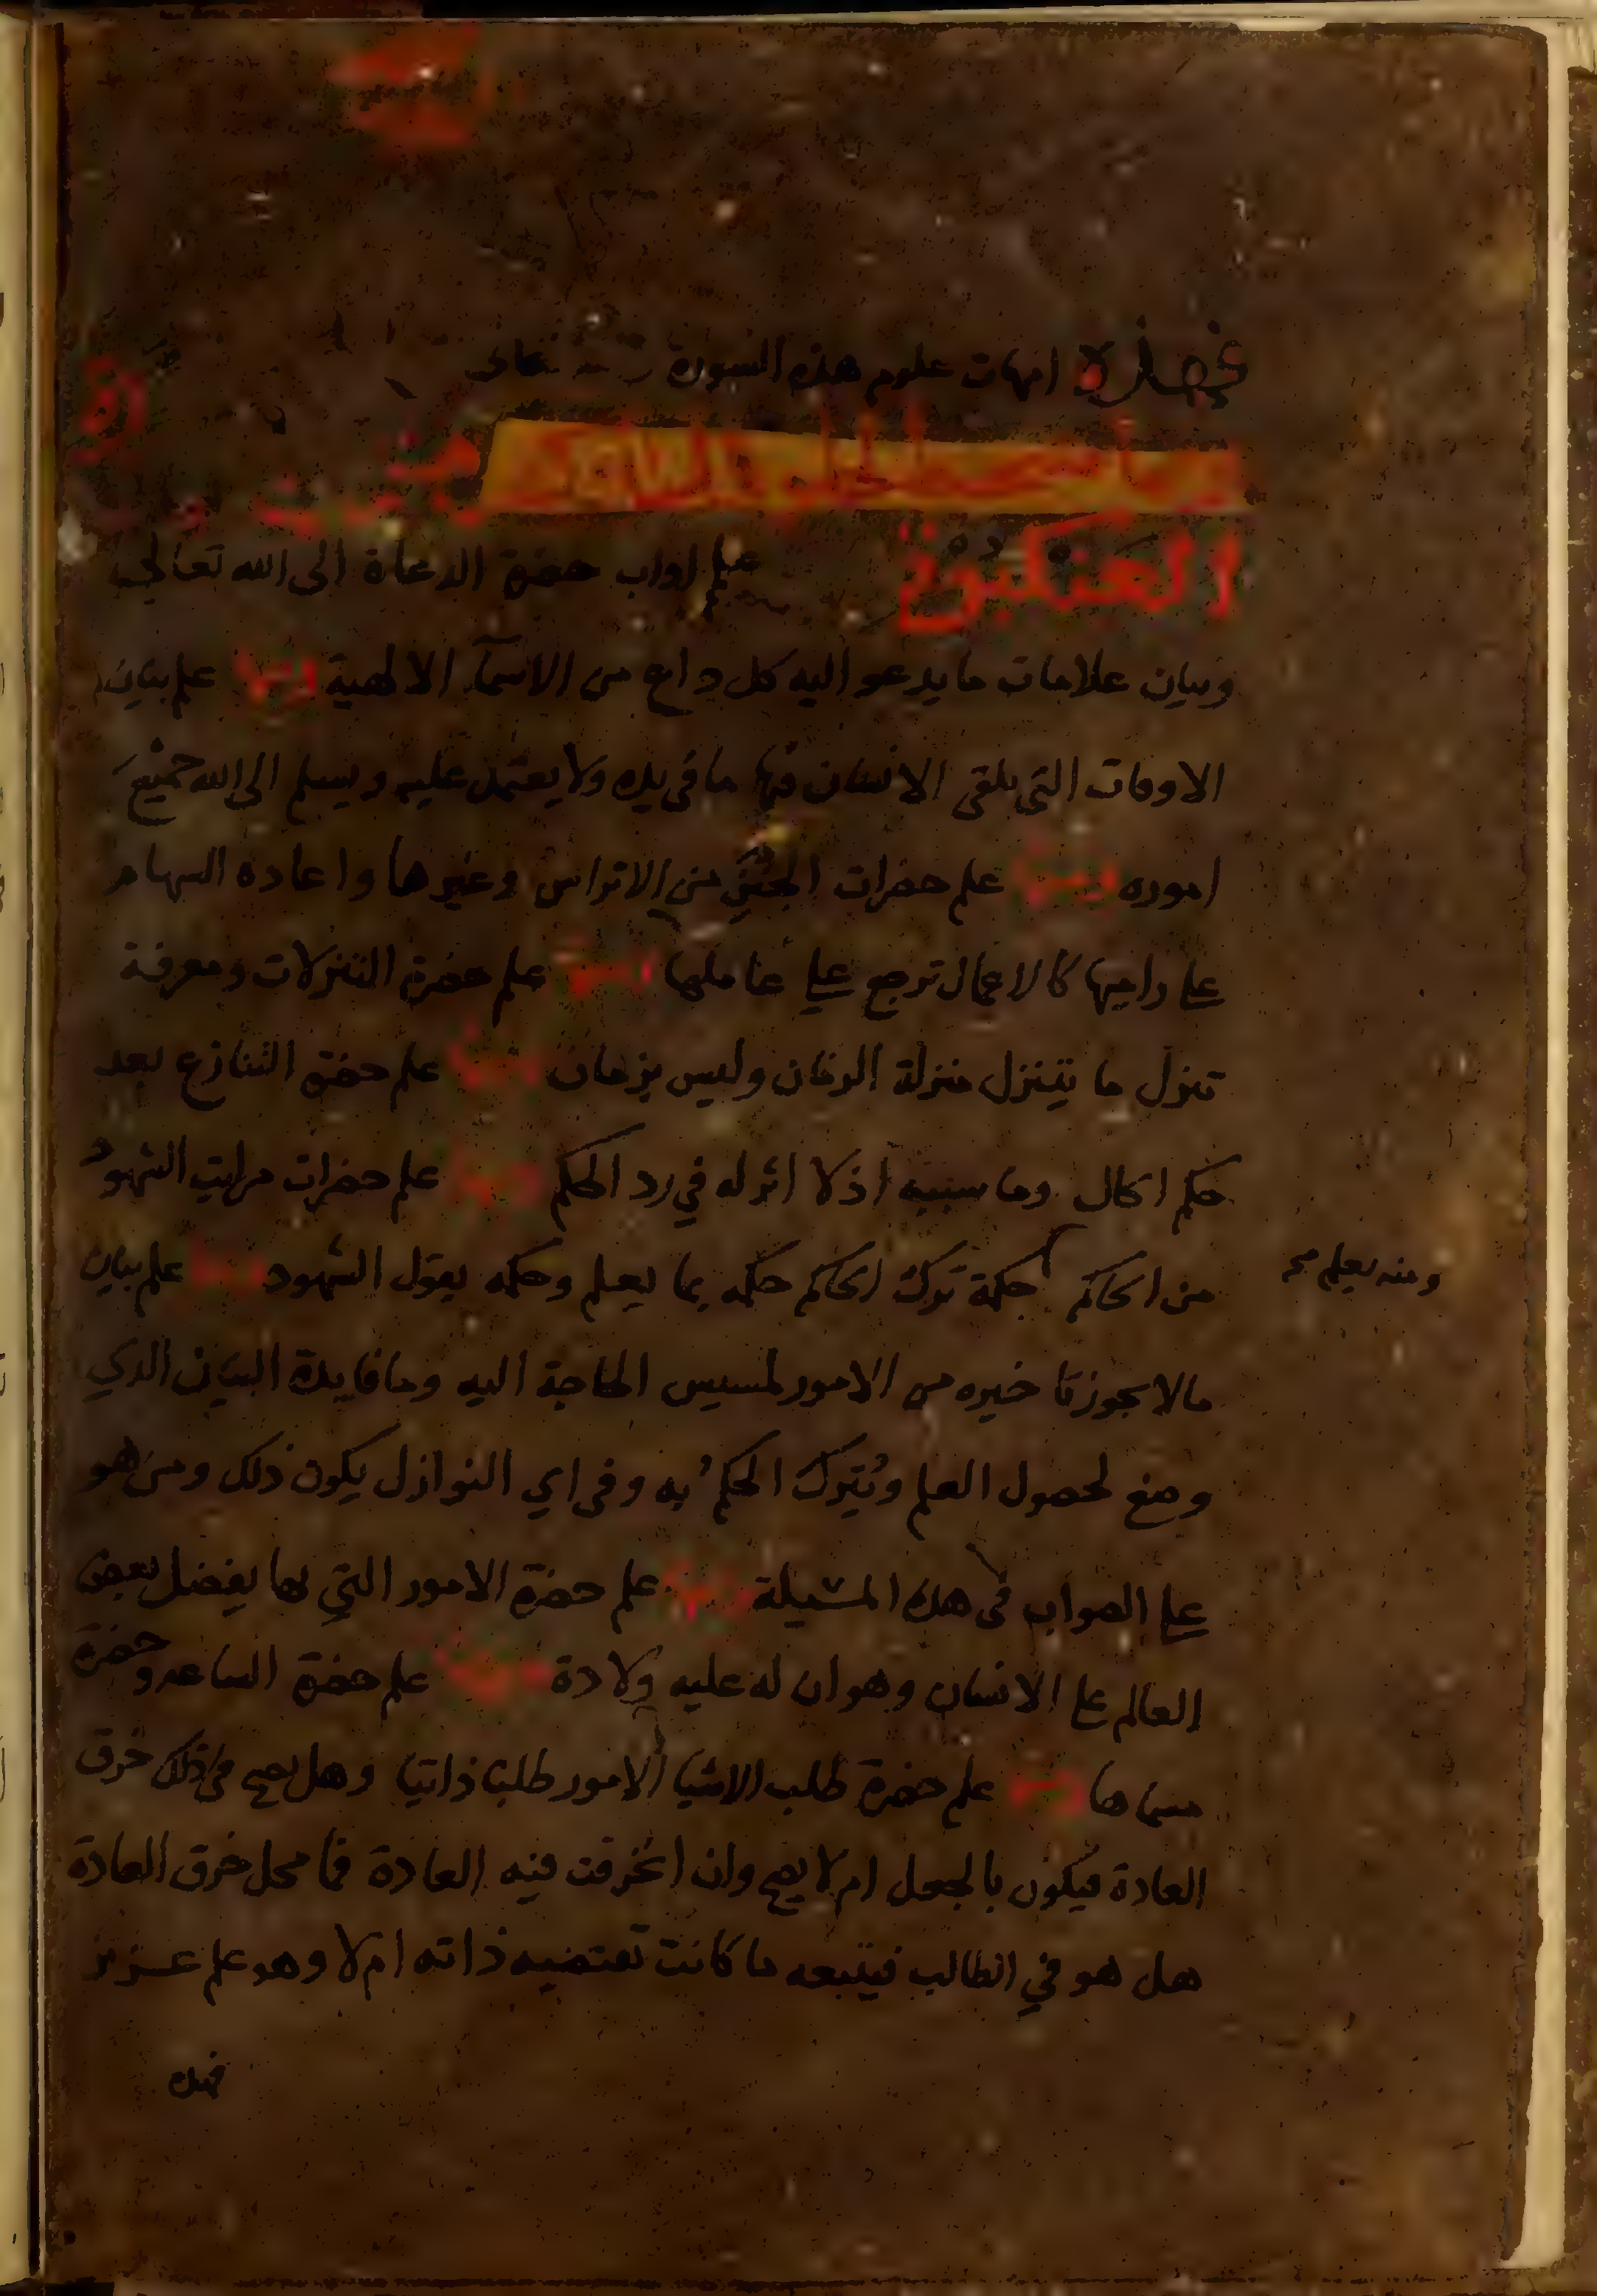 فهذه امهات علوم هذه السورة
العنكبوت علم ابواب حضرة الدعاة الى الله تعالى
وبيان علامات ما يدعو اليه كل داع من الاسمآء الالهية ومنها علم بيان
الاوقات التى يلقى الانسان فيها ما فى يده ولا يعتمد عليه ويسلم الى الله جميع
اموره ومنها علم حضرات الجنن من الاتراس وغيرها واعاده السهام
على راميها كالاعمال ترجع على عاملها ومنها علم حضرة التنزلات ومعرفة
تنزل ما يتنزل منزلة الزمان وليس بزمان ومنها علم حضرة التنازع بعد
حكم الحاكم وما سببه اذ لا اثر له في رد الحكم ومنها علم حضرات مراتب الشهود
من الحاكم حكمة ترك الحاكم حكمه بما يعلم وحكمه بقول الشهود ومنها علم بيان
ومنه يعلم صح
مالا يجوز تاخيره من الامور لمسيس الحاجة اليه وما فايدة البيان الذي
وضع لحصول العلم ويترك الحكم به وفى اي النوازل يكون ذلك ومن هو
على الصواب فى هذه المسئلة ومنها علم حضرة الامور التي بها يفضل بعض
العالم على الانسان وهو ان له عليه ولادة ومنها علم حضرة الساعة وحضرة
مسماها ومنها علم حضرة طلب الاشيا الامور طلبا ذاتيا وهل يصح فى ذلك خرق
العادة فيكون بالجعل ام لا يصح وان انخرقت فيه العادة فما محل خرق العادة
هل هو في الطالب فيتبعه ما كانت تقتضيه ذاته ام لا وهو علم عزيز
فهذه